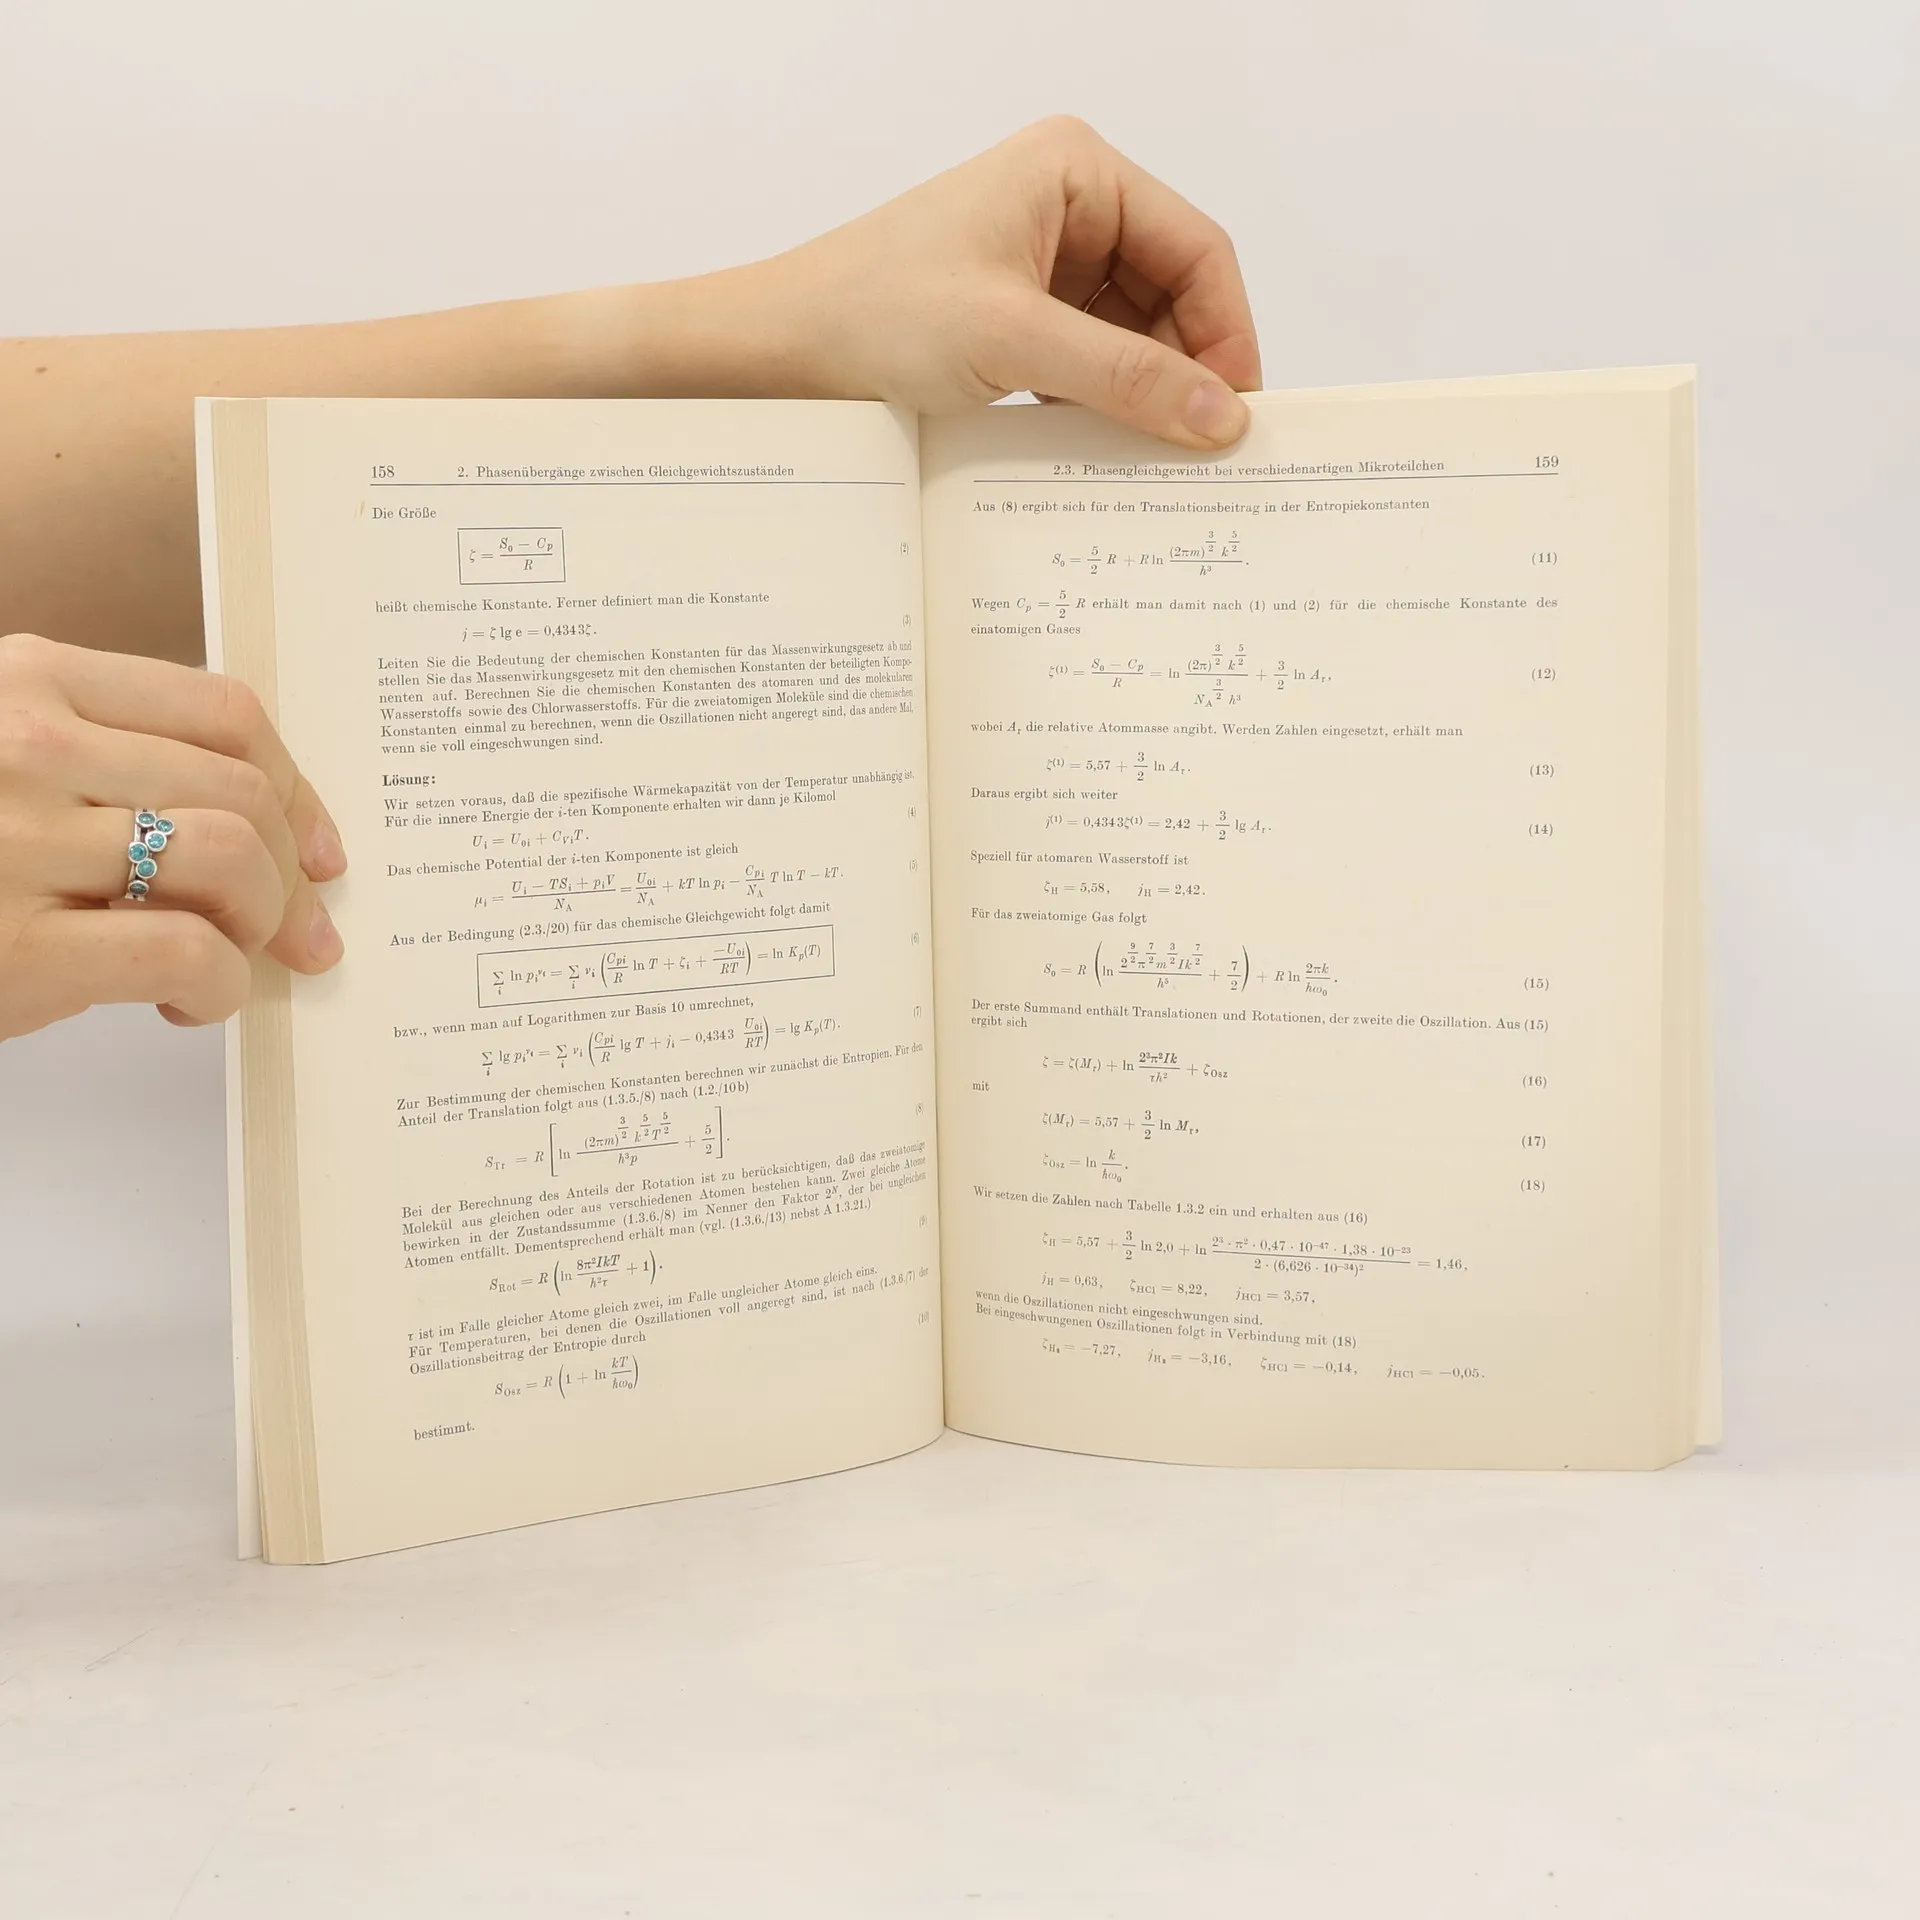 158 2. Phasenübergänge zwischen Gleichgewichtszuständen
Die Größe
ζ = (S₀ − Cₚ) / R (2)
heißt chemische Konstante. Ferner definiert man die Konstante
j = ζ lg e = 0,4343ζ. (3)
Leiten Sie die Bedeutung der chemischen Konstanten für das Massenwirkungsgesetz ab und
stellen Sie das Massenwirkungsgesetz mit den chemischen Konstanten der beteiligten Kompo-
nenten auf. Berechnen Sie die chemischen Konstanten des atomaren und des molekularen
Wasserstoffs sowie des Chlorwasserstoffs. Für die zweiatomigen Moleküle sind die chemischen
Konstanten einmal zu berechnen, wenn die Oszillationen nicht angeregt sind, das andere Mal,
wenn sie voll eingeschwungen sind.
Lösung:
Wir setzen voraus, daß die spezifische Wärmekapazität von der Temperatur unabhängig ist.
Für die innere Energie der i-ten Komponente erhalten wir dann je Kilomol
Uᵢ = U₀ᵢ + C_Vᵢ T. (4)
Das chemische Potential der i-ten Komponente ist gleich
μᵢ = (Uᵢ − TSᵢ + pᵢV) / N_A = U₀ᵢ / N_A + kT ln pᵢ − (C_pi / N_A) T ln T − kT. (5)
Aus der Bedingung (2.3./20) für das chemische Gleichgewicht folgt damit
∑ᵢ ln pᵢ^νᵢ = ∑ᵢ νᵢ (C_pi / R ln T + ζᵢ + −U₀ᵢ / RT) = ln Kₚ(T) (6)
bzw., wenn man auf Logarithmen zur Basis 10 umrechnet,
∑ᵢ lg pᵢ^νᵢ = ∑ᵢ νᵢ (C_pi / R lg T + jᵢ − 0,4343 U₀ᵢ / RT) = lg Kₚ(T). (7)
Zur Bestimmung der chemischen Konstanten berechnen wir zunächst die Entropien. Für den
Anteil der Translation folgt aus (1.3.5./8) nach (1.2./10b)
S_Tr = R [ln (2πm)^(3/2) k^(5/2) T^(5/2) / h³p + 5/2]. (8)
Bei der Berechnung des Anteils der Rotation ist zu berücksichtigen, daß das zweiatomige
Molekül aus gleichen oder aus verschiedenen Atomen bestehen kann. Zwei gleiche Atome
bewirken in der Zustandssumme (1.3.6./8) im Nenner den Faktor 2^N, der bei ungleichen
Atomen entfällt. Dementsprechend erhält man (vgl. (1.3.6./13) nebst A 1.3.21.)
S_Rot = R (ln 8π²IkT / h²τ + 1). (9)
τ ist im Falle gleicher Atome gleich zwei, im Falle ungleicher Atome gleich eins.
Für Temperaturen, bei denen die Oszillationen voll angeregt sind, ist nach (1.3.6./7) der
Oszillationsbeitrag der Entropie durch
S_Osz = R (1 + ln kT / ħω₀) (10)
bestimmt.
2.3. Phasengleichgewicht bei verschiedenartigen Mikroteilchen 159
Aus (8) ergibt sich für den Translationsbeitrag in der Entropiekonstanten
S₀ = 5/2 R + R ln (2πm)^(3/2) k^(5/2) / h³. (11)
Wegen Cₚ = 5/2 R erhält man damit nach (1) und (2) für die chemische Konstante des
einatomigen Gases
ζ⁽¹⁾ = (S₀ − Cₚ) / R = ln (2π)^(3/2) k^(5/2) / N_A^(3/2) h³ + 3/2 ln Aᵣ, (12)
wobei Aᵣ die relative Atommasse angibt. Werden Zahlen eingesetzt, erhält man
ζ⁽¹⁾ = 5,57 + 3/2 ln Aᵣ. (13)
Daraus ergibt sich weiter
j⁽¹⁾ = 0,4343ζ⁽¹⁾ = 2,42 + 3/2 lg Aᵣ. (14)
Speziell für atomaren Wasserstoff ist
ζ_H = 5,58, j_H = 2,42.
Für das zweiatomige Gas folgt
S₀ = R (ln 2^(9/2) π^(7/2) m^(3/2) I k^(7/2) / h⁵ + 7/2) + R ln 2πk / hω₀. (15)
Der erste Summand enthält Translationen und Rotationen, der zweite die Oszillation. Aus (15)
ergibt sich
ζ = ζ(Mᵣ) + ln 2³π²Ik / τh² + ζ_Osz (16)
mit
ζ(Mᵣ) = 5,57 + 3/2 ln Mᵣ, (17)
ζ_Osz = ln k / ħω₀. (18)
Wir setzen die Zahlen nach Tabelle 1.3.2 ein und erhalten aus (16)
ζ_H = 5,57 + 3/2 ln 2,0 + ln 2³ · π² · 0,47 · 10⁻⁴⁷ · 1,38 · 10⁻²³ / 2 · (6,626 · 10⁻³⁴)² = 1,46,
j_H = 0,63, ζ_HCl = 8,22, j_HCl = 3,57,
wenn die Oszillationen nicht eingeschwungen sind.
Bei eingeschwungenen Oszillationen folgt in Verbindung mit (18)
ζ_H₂ = −7,27, j_H₂ = −3,16, ζ_HCl = −0,14, j_HCl = −0,05.